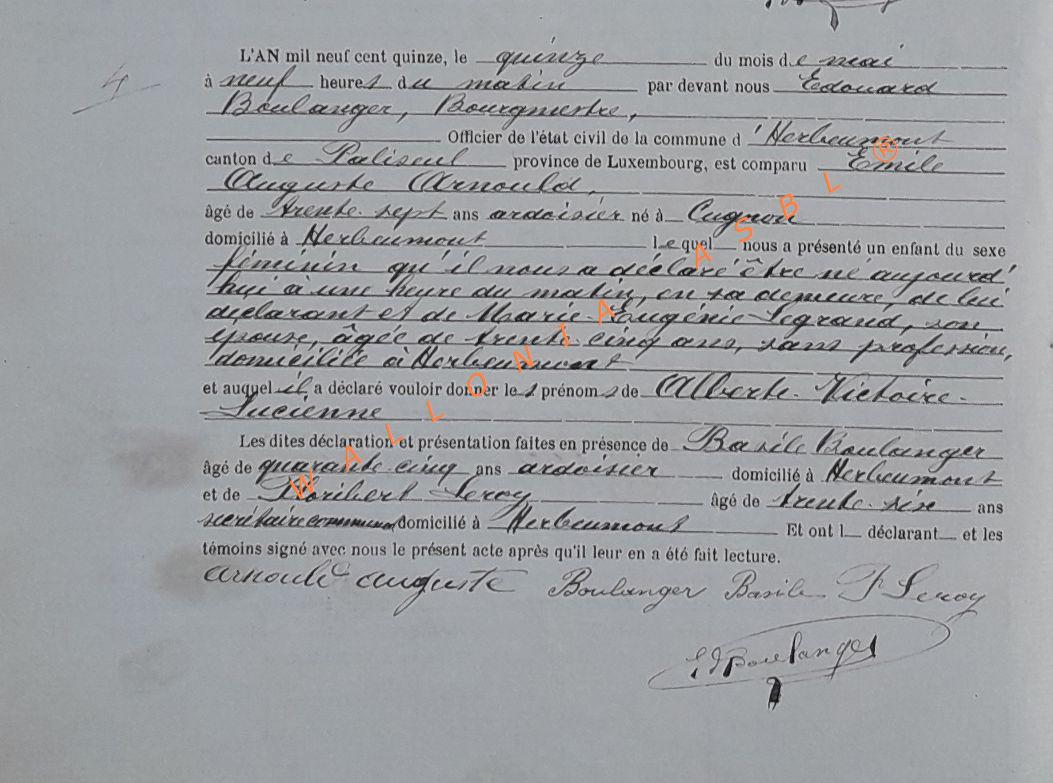 4
L'AN mil neuf cent quinze, le quinze du mois de mai
à neuf heures du matin par devant nous Edouard
Boulanger, Bourgmestre,
Officier de l'état civil de la commune d'Herbeumont
canton de Paliseul province de Luxembourg, est comparu Emile
Auguste Arnould,
âgé de trente-sept ans ardoisier né à Cugnon
domicilié à Herbeumont lequel nous a présenté un enfant du sexe
féminin qu'il nous a déclaré être né aujourd'
hui à une heure du matin, en sa demeure, de lui
déclarant et de Marie-Eugénie Legrand, son
épouse, âgée de trente-cinq ans, sans profession,
domiciliée à Herbeumont
et auquel il a déclaré vouloir donner les prénoms de Alberte-Victoire-
Lucienne
Les dites déclaration et présentation faites en présence de Basile Boulanger
âgé de quarante-cinq ans ardoisier domicilié à Herbeumont
et de Floribert Leroy âgé de trente-six ans
secrétaire communal domicilié à Herbeumont Et ont l déclarant et les
témoins signé avec nous le présent acte après qu'il leur en a été fait lecture.
Arnould Auguste Boulanger Basile F Leroy
Ed Boulanger
WALLONIA ASBL ®